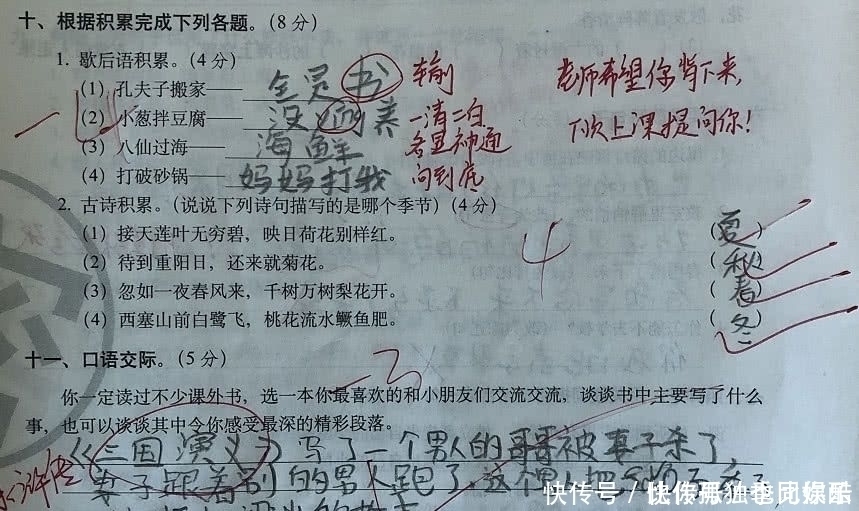 十、根据积累完成下列各题。(8分)
1. 歇后语积累。(4分)
(1) 孔夫子搬家—— 全是书 车输
(2) 小葱拌豆腐—— 没 养 一清二白
(3) 八仙过海—— 海鲜 各显神通
(4) 打破砂锅—— 妈妈打我 问到底
老师希望你背下来,
下次上课提问你!
-4
2. 古诗积累。(说说下列诗句描写的是哪个季节)(4分)
(1) 接天莲叶无穷碧,映日荷花别样红。 (夏)
(2) 待到重阳日,还来就菊花。 (秋)
(3) 忽如一夜春风来,千树万树梨花开。 (春)
(4) 西塞山前白鹭飞,桃花流水鳜鱼肥。 (冬)
4
十一、口语交际。(5分)
-3
你一定读过不少课外书,选一本你最喜欢的和小朋友们交流交流,谈谈书中主要写了什
么事,也可以谈谈其中令你感受最深的精彩段落。
《三国演义》写了一个男人的哥哥被妻子杀了,
水浒传
妻子跟着别的男人跑了,这个人把
快传号